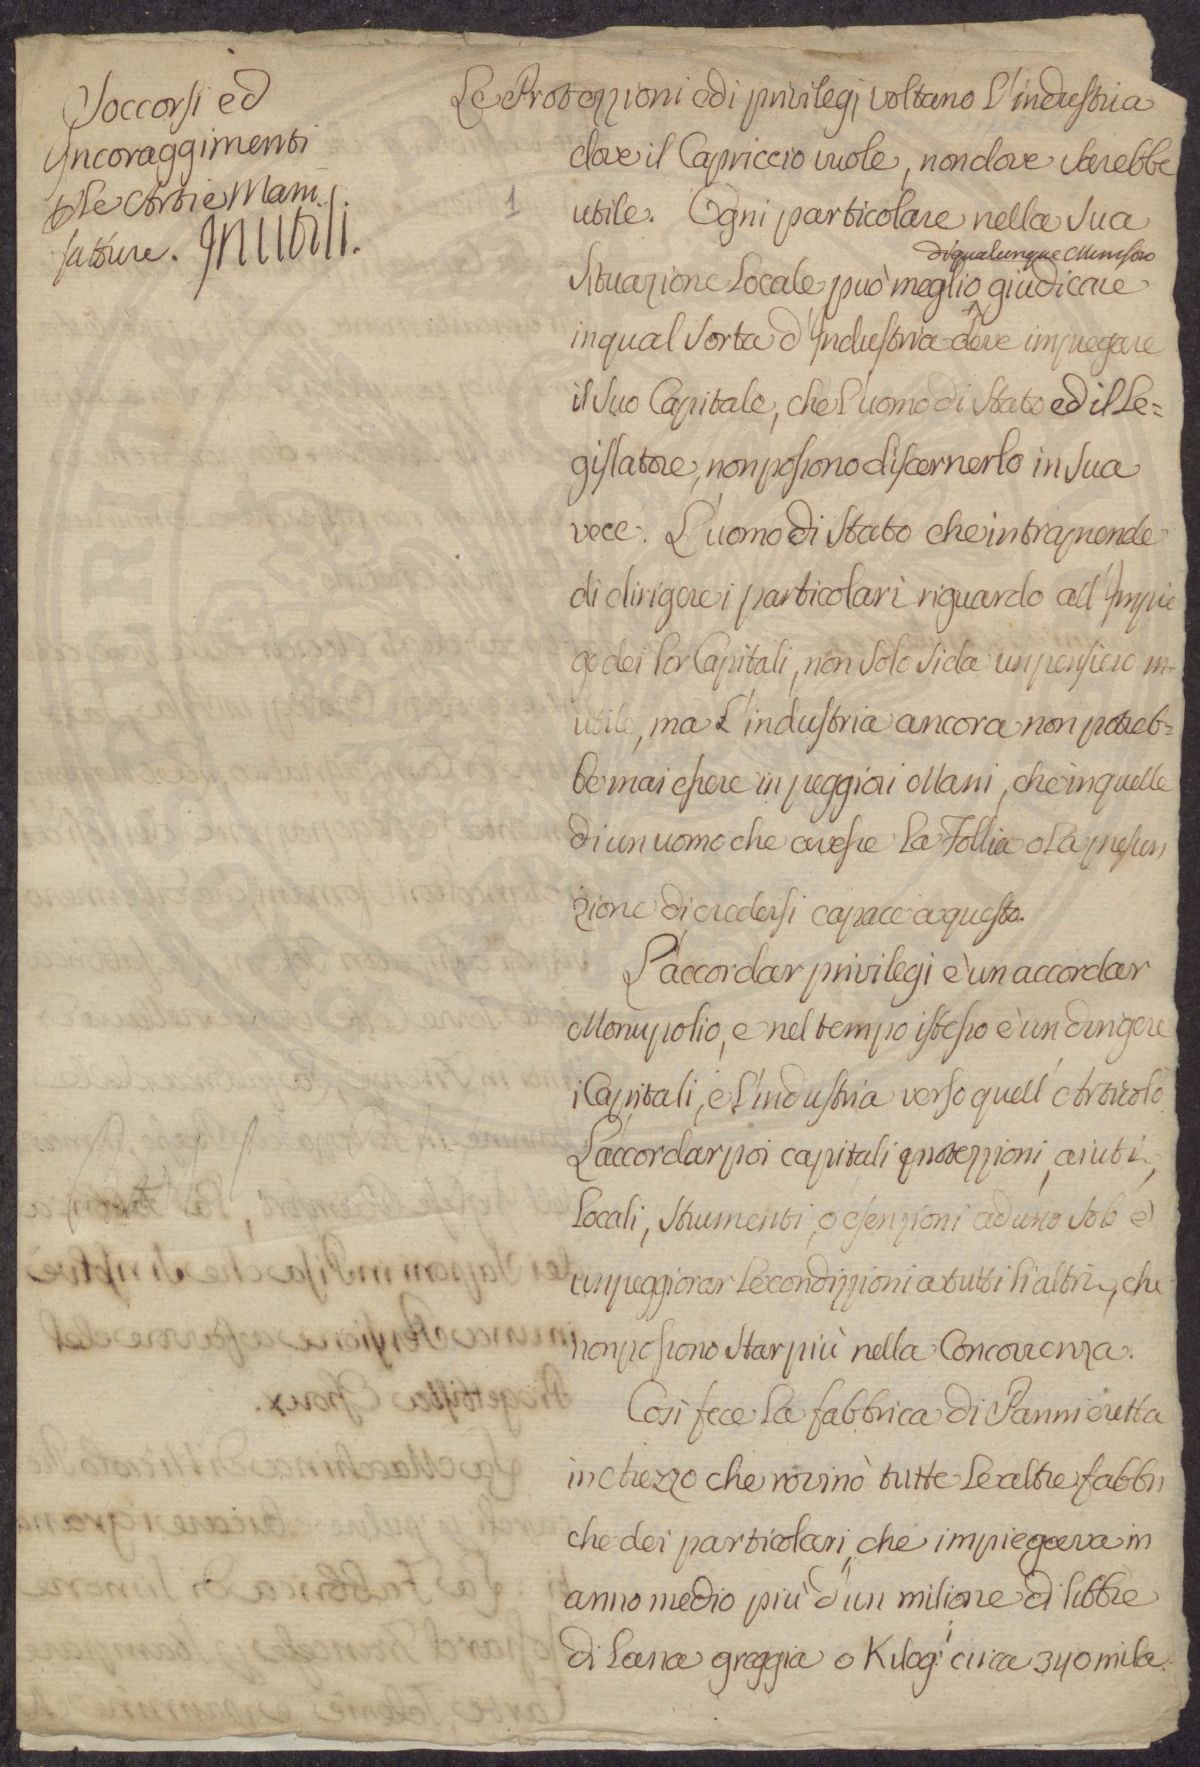 Soccorsi ed
Incoraggimenti
p le Arti e Mani
fatture. Inutili.
1
Le Protezzioni ed i privilegj voltano l'industria
dove il Capriccio vuole, non dove sarebbe
utile. Ogni particolare nella sua
di qualunque Ministro
situazione Locale può meglio giudicare
in qual sorta d'Industria deve impiegare
il suo Capitale, che l'uomo di stato ed il Le=
gislatore, non possono discernerlo in sua
vece. L'uomo di stato che intraprende
di dirigere i particolari riguardo all'Impie
go dei lor Capitali, non solo si da un pensiero in-
utile, ma l'industria ancora non potreb=
be mai essere in peggiori Mani, che in quelle
di un uomo che avesse la Follia o la presun
zione di credersi capace a questo.
L'accordar privilegi è un accordar
Monupolio, e nel tempo istesso è un dirigere
i Capitali, e l'industria verso quell'Articolo.
L'accordar poi capitali protezzioni, aiuti,
Locali, strumenti, o esenzioni ad uno solo è
un peggiorar le condizzioni a tutti li altri, che
non possono star più nella Concorrenza.
Così fece la fabbrica di Panni eretta
in Arezzo che rovinò tutte le altre fabbri
che dei particolari, che impiegava in
anno medio più d'un milione di libbre
di Lana greggia o Kilog.i circa 340 mila.